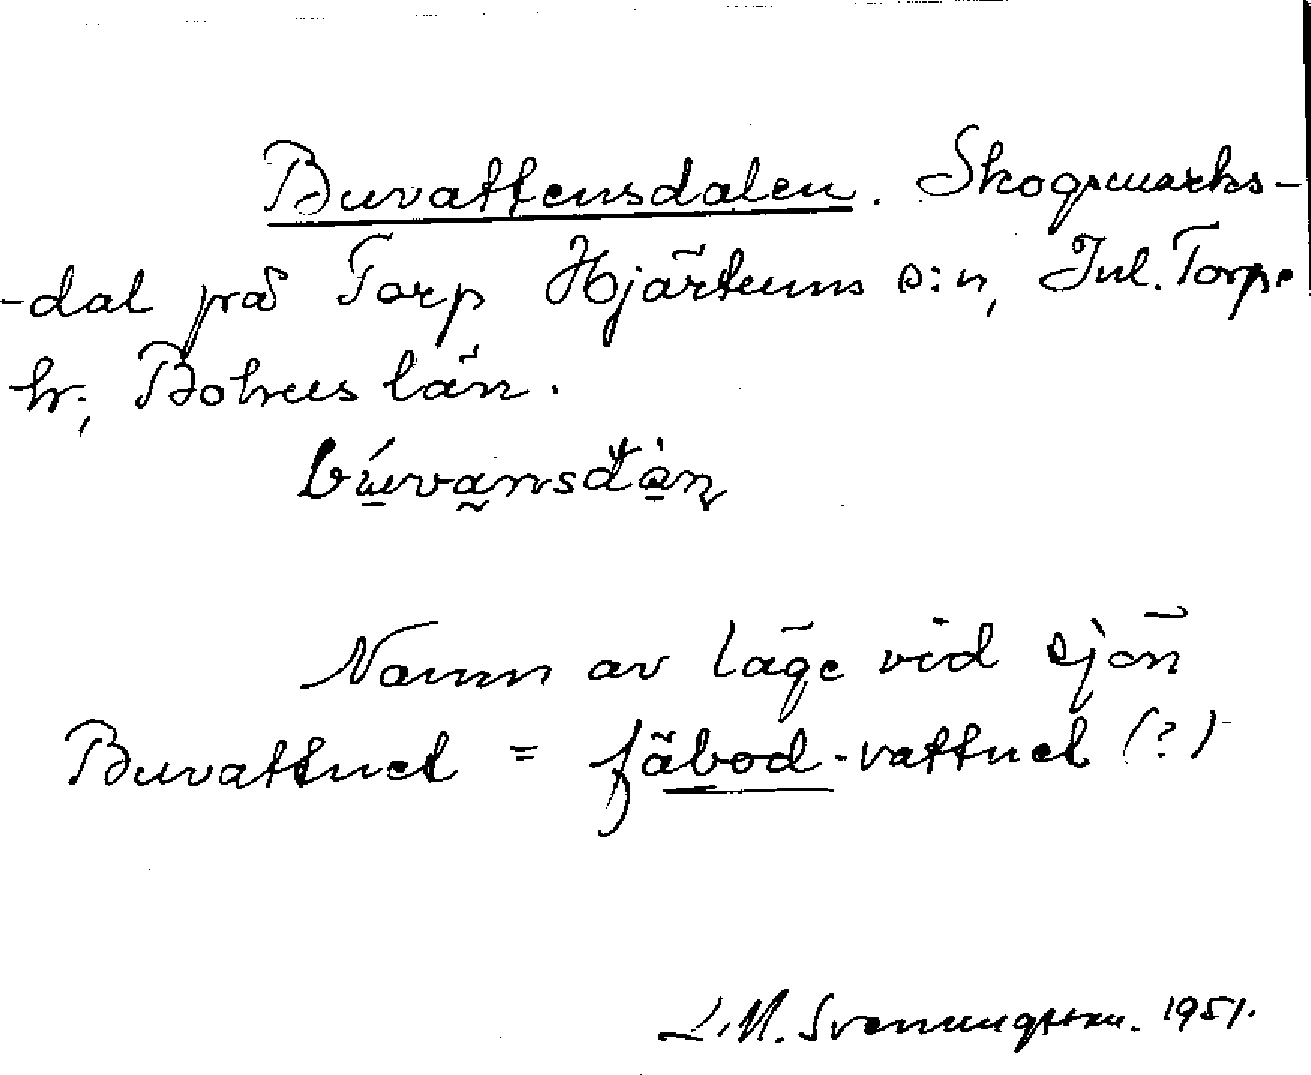 Buvattensdalen. Skogsmarks-
-dal på Torp Hjärtums s:n, Inl. Torpe
hr., Bohus län.
búvansdàn
Namn av läge vid sjön
Buvattnet = fäbod-vattnet (?)
L.M. Svenungsson. 1951.